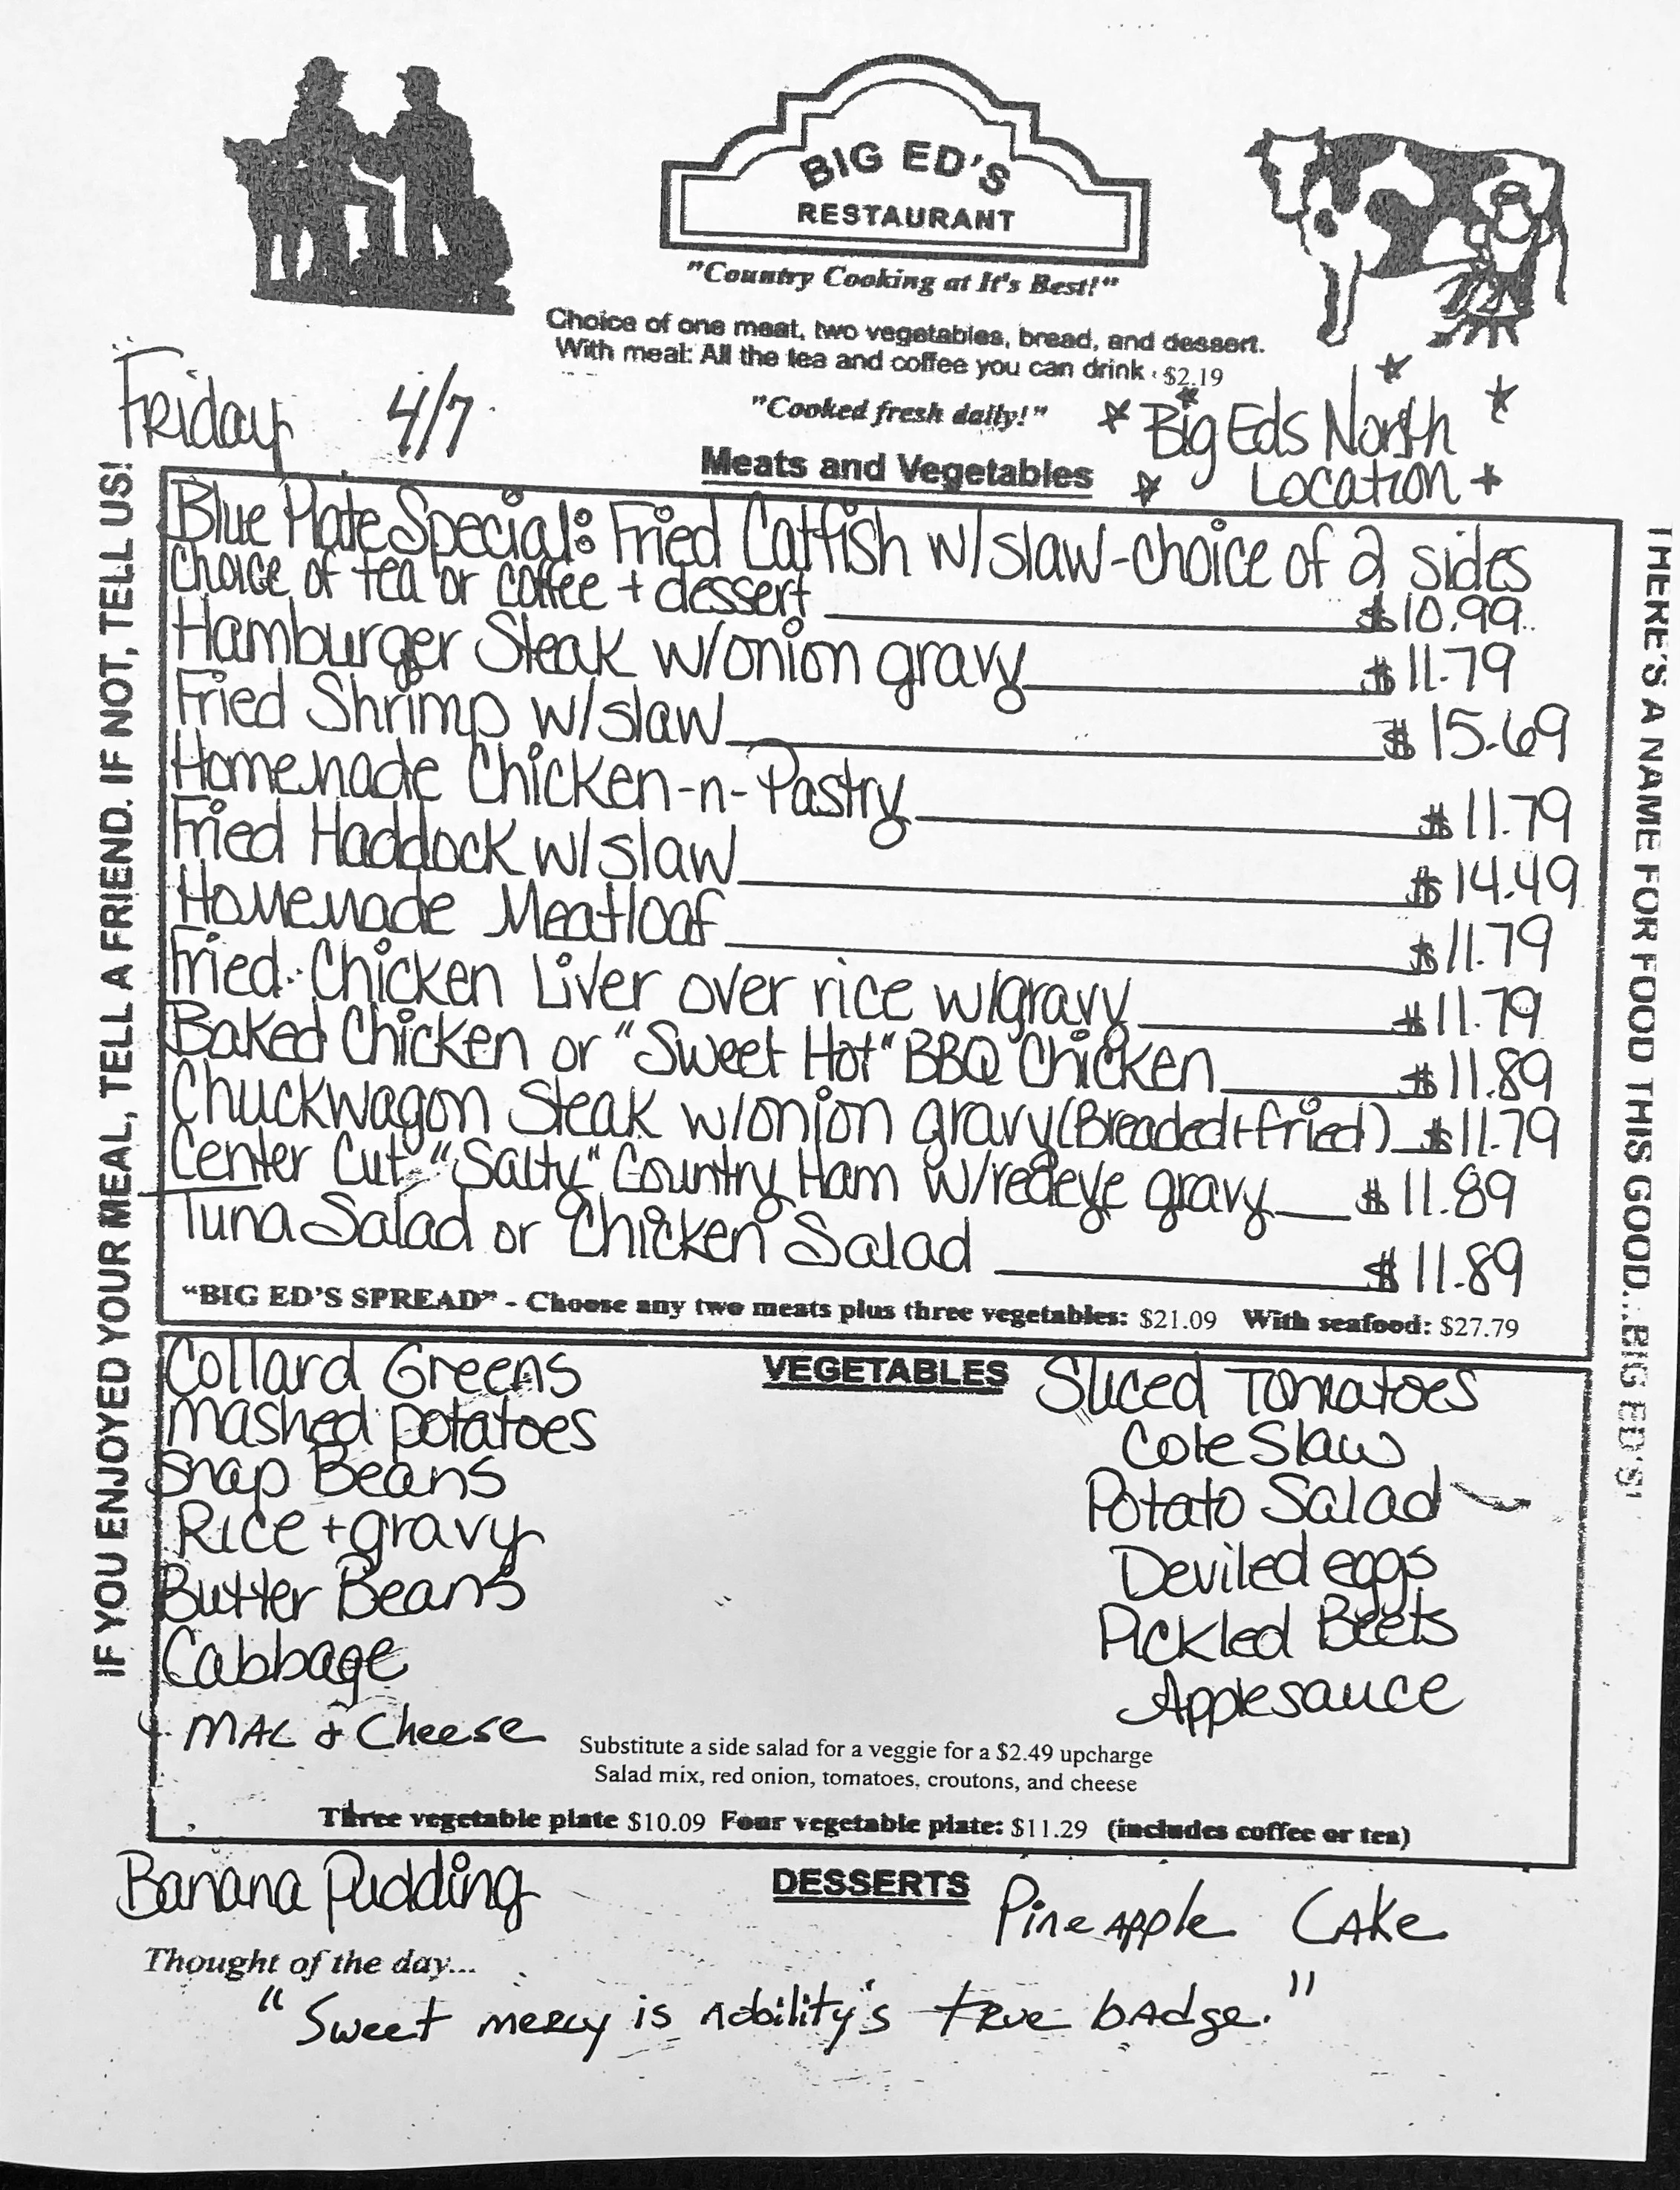 BIG ED'S
RESTAURANT
"Country Cooking at It's Best!"
Choice of one meat, two vegetables, bread, and dessert.
With meal: All the tea and coffee you can drink · $2.19
"Cooked fresh daily!"
Friday 4/7
Big Eds North
Location
Meats and Vegetables
IF YOU ENJOYED YOUR MEAL, TELL A FRIEND. IF NOT, TELL US!
Blue Plate Special: Fried Catfish w/slaw-choice of 2 sides
choice of tea or coffee + dessert $10.99
Hamburger Steak w/onion gravy $11.79
Fried Shrimp w/slaw $15.69
Homemade Chicken-n-Pastry $11.79
Fried Haddock w/slaw $14.49
Homemade Meatloaf $11.79
Fried Chicken Liver over rice w/gravy $11.79
Baked Chicken or "Sweet Hot" BBQ Chicken $11.89
Chuckwagon Steak w/onion gravy (Breaded+fried) $11.79
Center Cut "Salty" Country Ham w/redeye gravy $11.89
Tuna Salad or Chicken Salad $11.89
"BIG ED'S SPREAD" - Choose any two meats plus three vegetables: $21.09 With seafood: $27.79
THERE'S A NAME FOR FOOD THIS GOOD...BIG ED'S!
VEGETABLES
Collard Greens
Mashed potatoes
Snap Beans
Rice + gravy
Butter Beans
Cabbage
MAC & Cheese
Sliced Tomatoes
Cole Slaw
Potato Salad
Deviled eggs
Pickled Beets
Applesauce
Substitute a side salad for a veggie for a $2.49 upcharge
Salad mix, red onion, tomatoes, croutons, and cheese
Three vegetable plate $10.09 Four vegetable plate: $11.29 (includes coffee or tea)
DESSERTS
Banana Pudding
Pineapple Cake
Thought of the day...
"Sweet mercy is nobility's true badge."